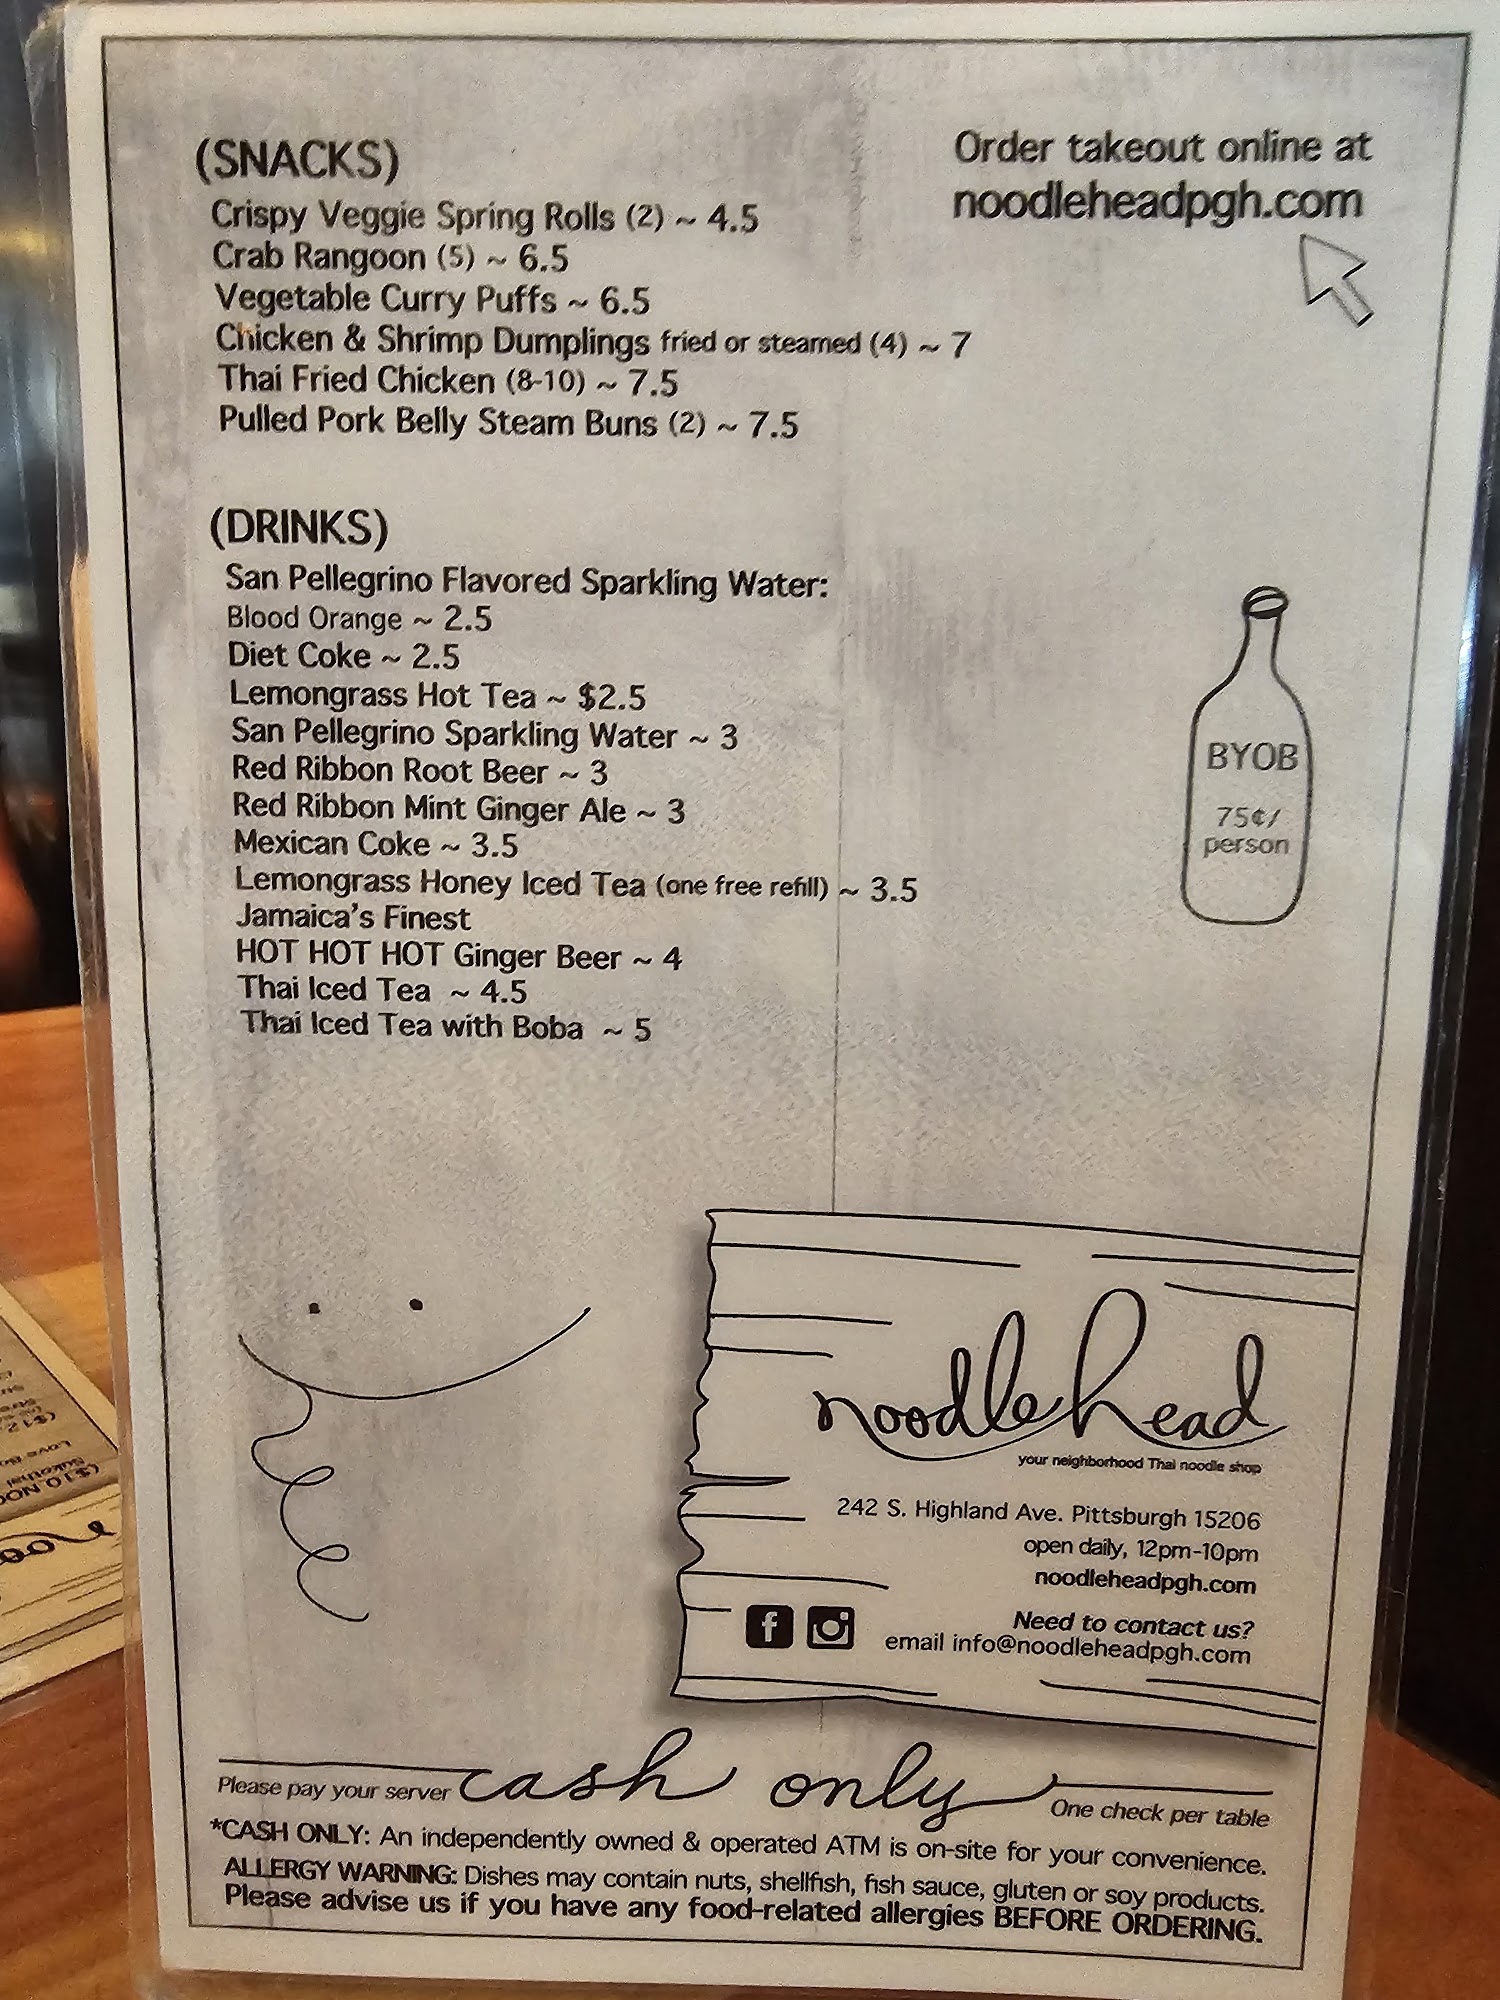 (SNACKS)
Crispy Veggie Spring Rolls (2) ~ 4.5
Crab Rangoon (5) ~ 6.5
Vegetable Curry Puffs ~ 6.5
Chicken & Shrimp Dumplings fried or steamed (4) ~ 7
Thai Fried Chicken (8-10) ~ 7.5
Pulled Pork Belly Steam Buns (2) ~ 7.5
Order takeout online at
noodleheadpgh.com
(DRINKS)
San Pellegrino Flavored Sparkling Water:
Blood Orange ~ 2.5
Diet Coke ~ 2.5
Lemongrass Hot Tea ~ $2.5
San Pellegrino Sparkling Water ~ 3
Red Ribbon Root Beer ~ 3
Red Ribbon Mint Ginger Ale ~ 3
Mexican Coke ~ 3.5
Lemongrass Honey Iced Tea (one free refill) ~ 3.5
Jamaica's Finest
HOT HOT HOT Ginger Beer ~ 4
Thai Iced Tea ~ 4.5
Thai Iced Tea with Boba ~ 5
BYOB
75¢/
person
noodlehead
your neighborhood Thai noodle shop
242 S. Highland Ave. Pittsburgh 15206
open daily, 12pm-10pm
noodleheadpgh.com
Need to contact us?
email info@noodleheadpgh.com
Please pay your server cash only One check per table
*CASH ONLY: An independently owned & operated ATM is on-site for your convenience.
ALLERGY WARNING: Dishes may contain nuts, shellfish, fish sauce, gluten or soy products.
Please advise us if you have any food-related allergies BEFORE ORDERING.